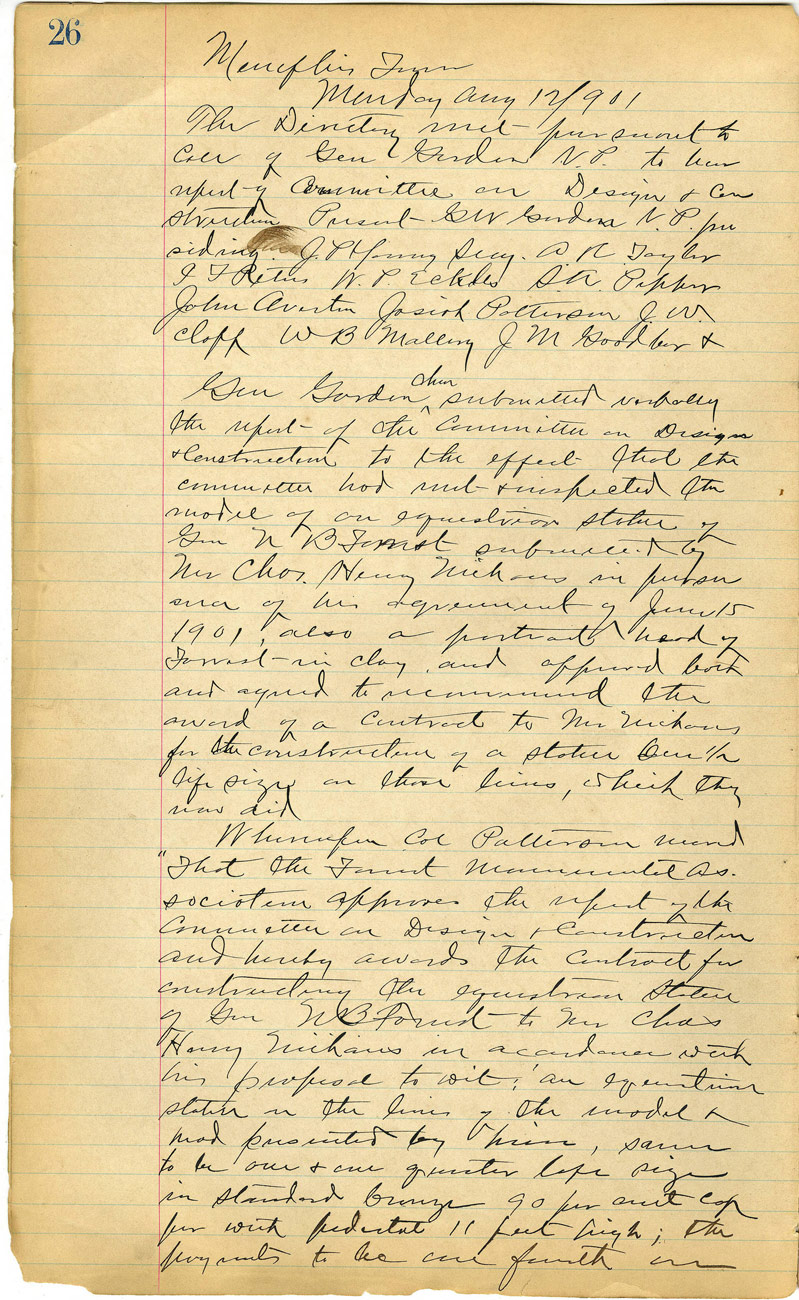 26
Memphis Tenn
Monday Aug 12/901
The Directory met pursuant to
call of Gen Gordon V.P. to hear
report of Committee on Design & Con
struction Present G W Gordon V.P. pre
siding. J. P. Young Secy. A R Taylor
I F Peters W. P. Eckles S. A. Pepper
John Overton Josiah Patterson J. W.
Clapp W B Mallory J M Goodbar &
Gen Gordon chm submitted verbally
the report of the Committee on Design
& Construction to the effect that the
committee had met & inspected the
model of an equestrian statue of
Gen N B Forrest submitted by
Mr Chas. Henry Niehaus in pursu
ance of his agreement of June 15
1901, also a portrait head of
Forrest in clay and approved both
and agreed to recommend the
award of a contract to Mr Niehaus
for the construction of a statue One 1/4
life size on those lines, which they
now did
Whereupon Col Patterson moved
"That the Forrest Monumental As.
sociation approves the report of the
Committee on Design & Construction
and hereby awards the contract for
constructing the equestrian Statue
of Gen N B Forrest to Mr Chas
Henry Niehaus in accordance with
his proposal to wit: an equestrian
statue on the lines of the model &
head presented by him, same
to be one & one quarter life size
in standard bronze 90 per cent cop
per with pedestal 11 feet high; the
payments to be one fourth on